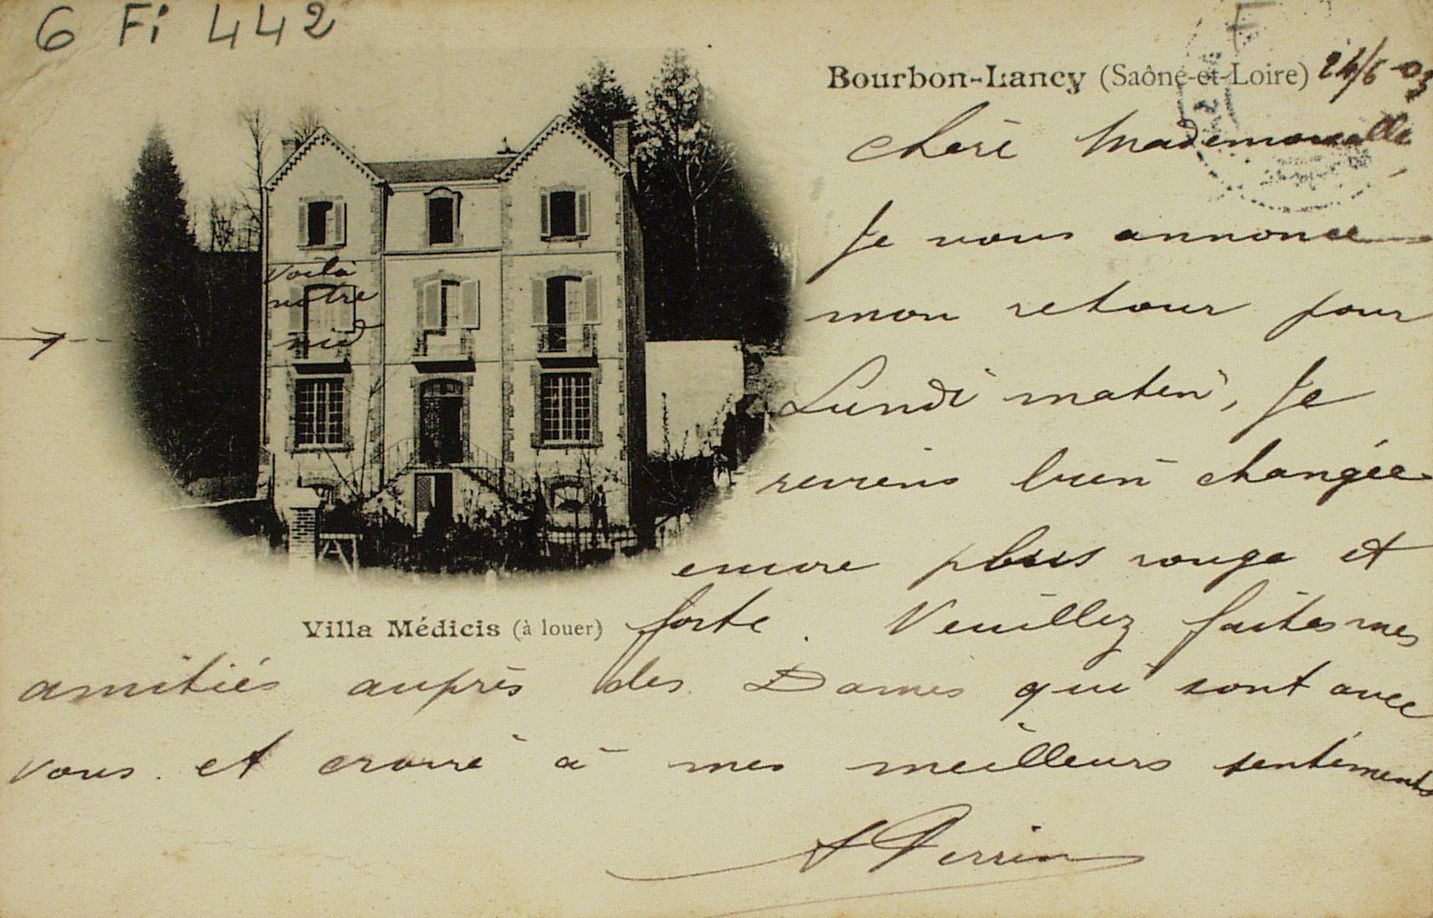 6 Fi 442
Bourbon-Lancy (Saône-et-Loire) 24/6-03
chère Mademoiselle
Je vous annonce
mon retour pour
Lundi matin, Je
reviens bien changée
encore plus rouge et
forte. Veuillez faites mes
amitiés auprès des Dames qui sont avec
vous. et croire à mes meilleurs sentiments
Perrin
Voilà
notre
nid
Villa Médicis (à louer)